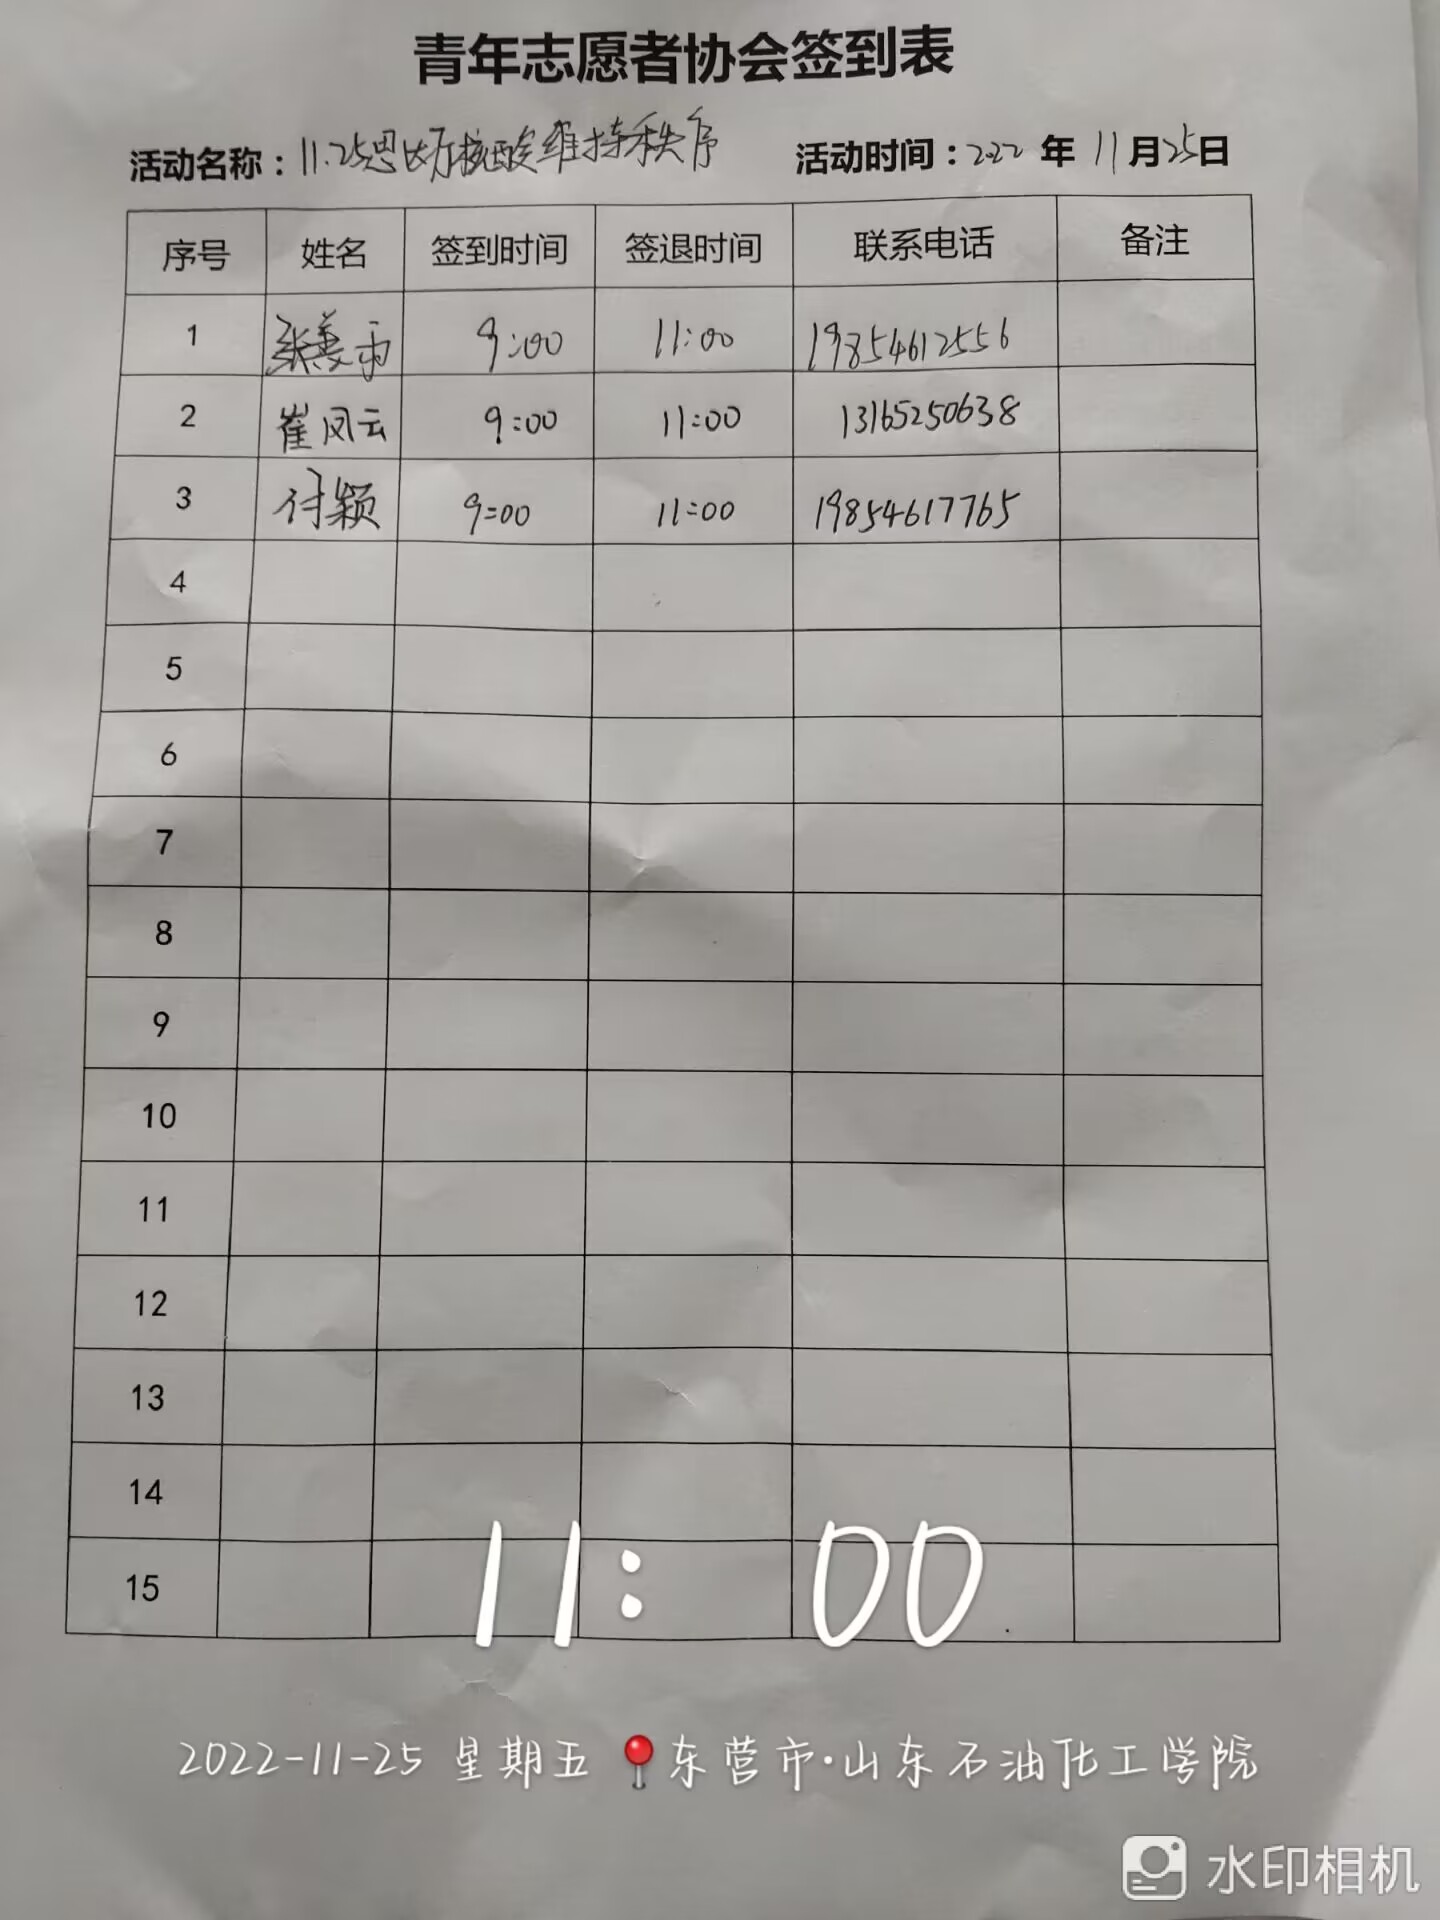 青年志愿者协会签到表
活动名称：11.25思齐核酸维持秩序 活动时间：2022年11月25日
序号 姓名 签到时间 签退时间 联系电话 备注
1 9:00 11:00 19854612556
2 崔凤云 9:00 11:00 13165250638
3 付颖 9:00 11:00 19854617765
4
5
6
7
8
9
10
11
12
13
14
15
11:00
2022-11-25 星期五 东营市·山东石油化工学院
水印相机